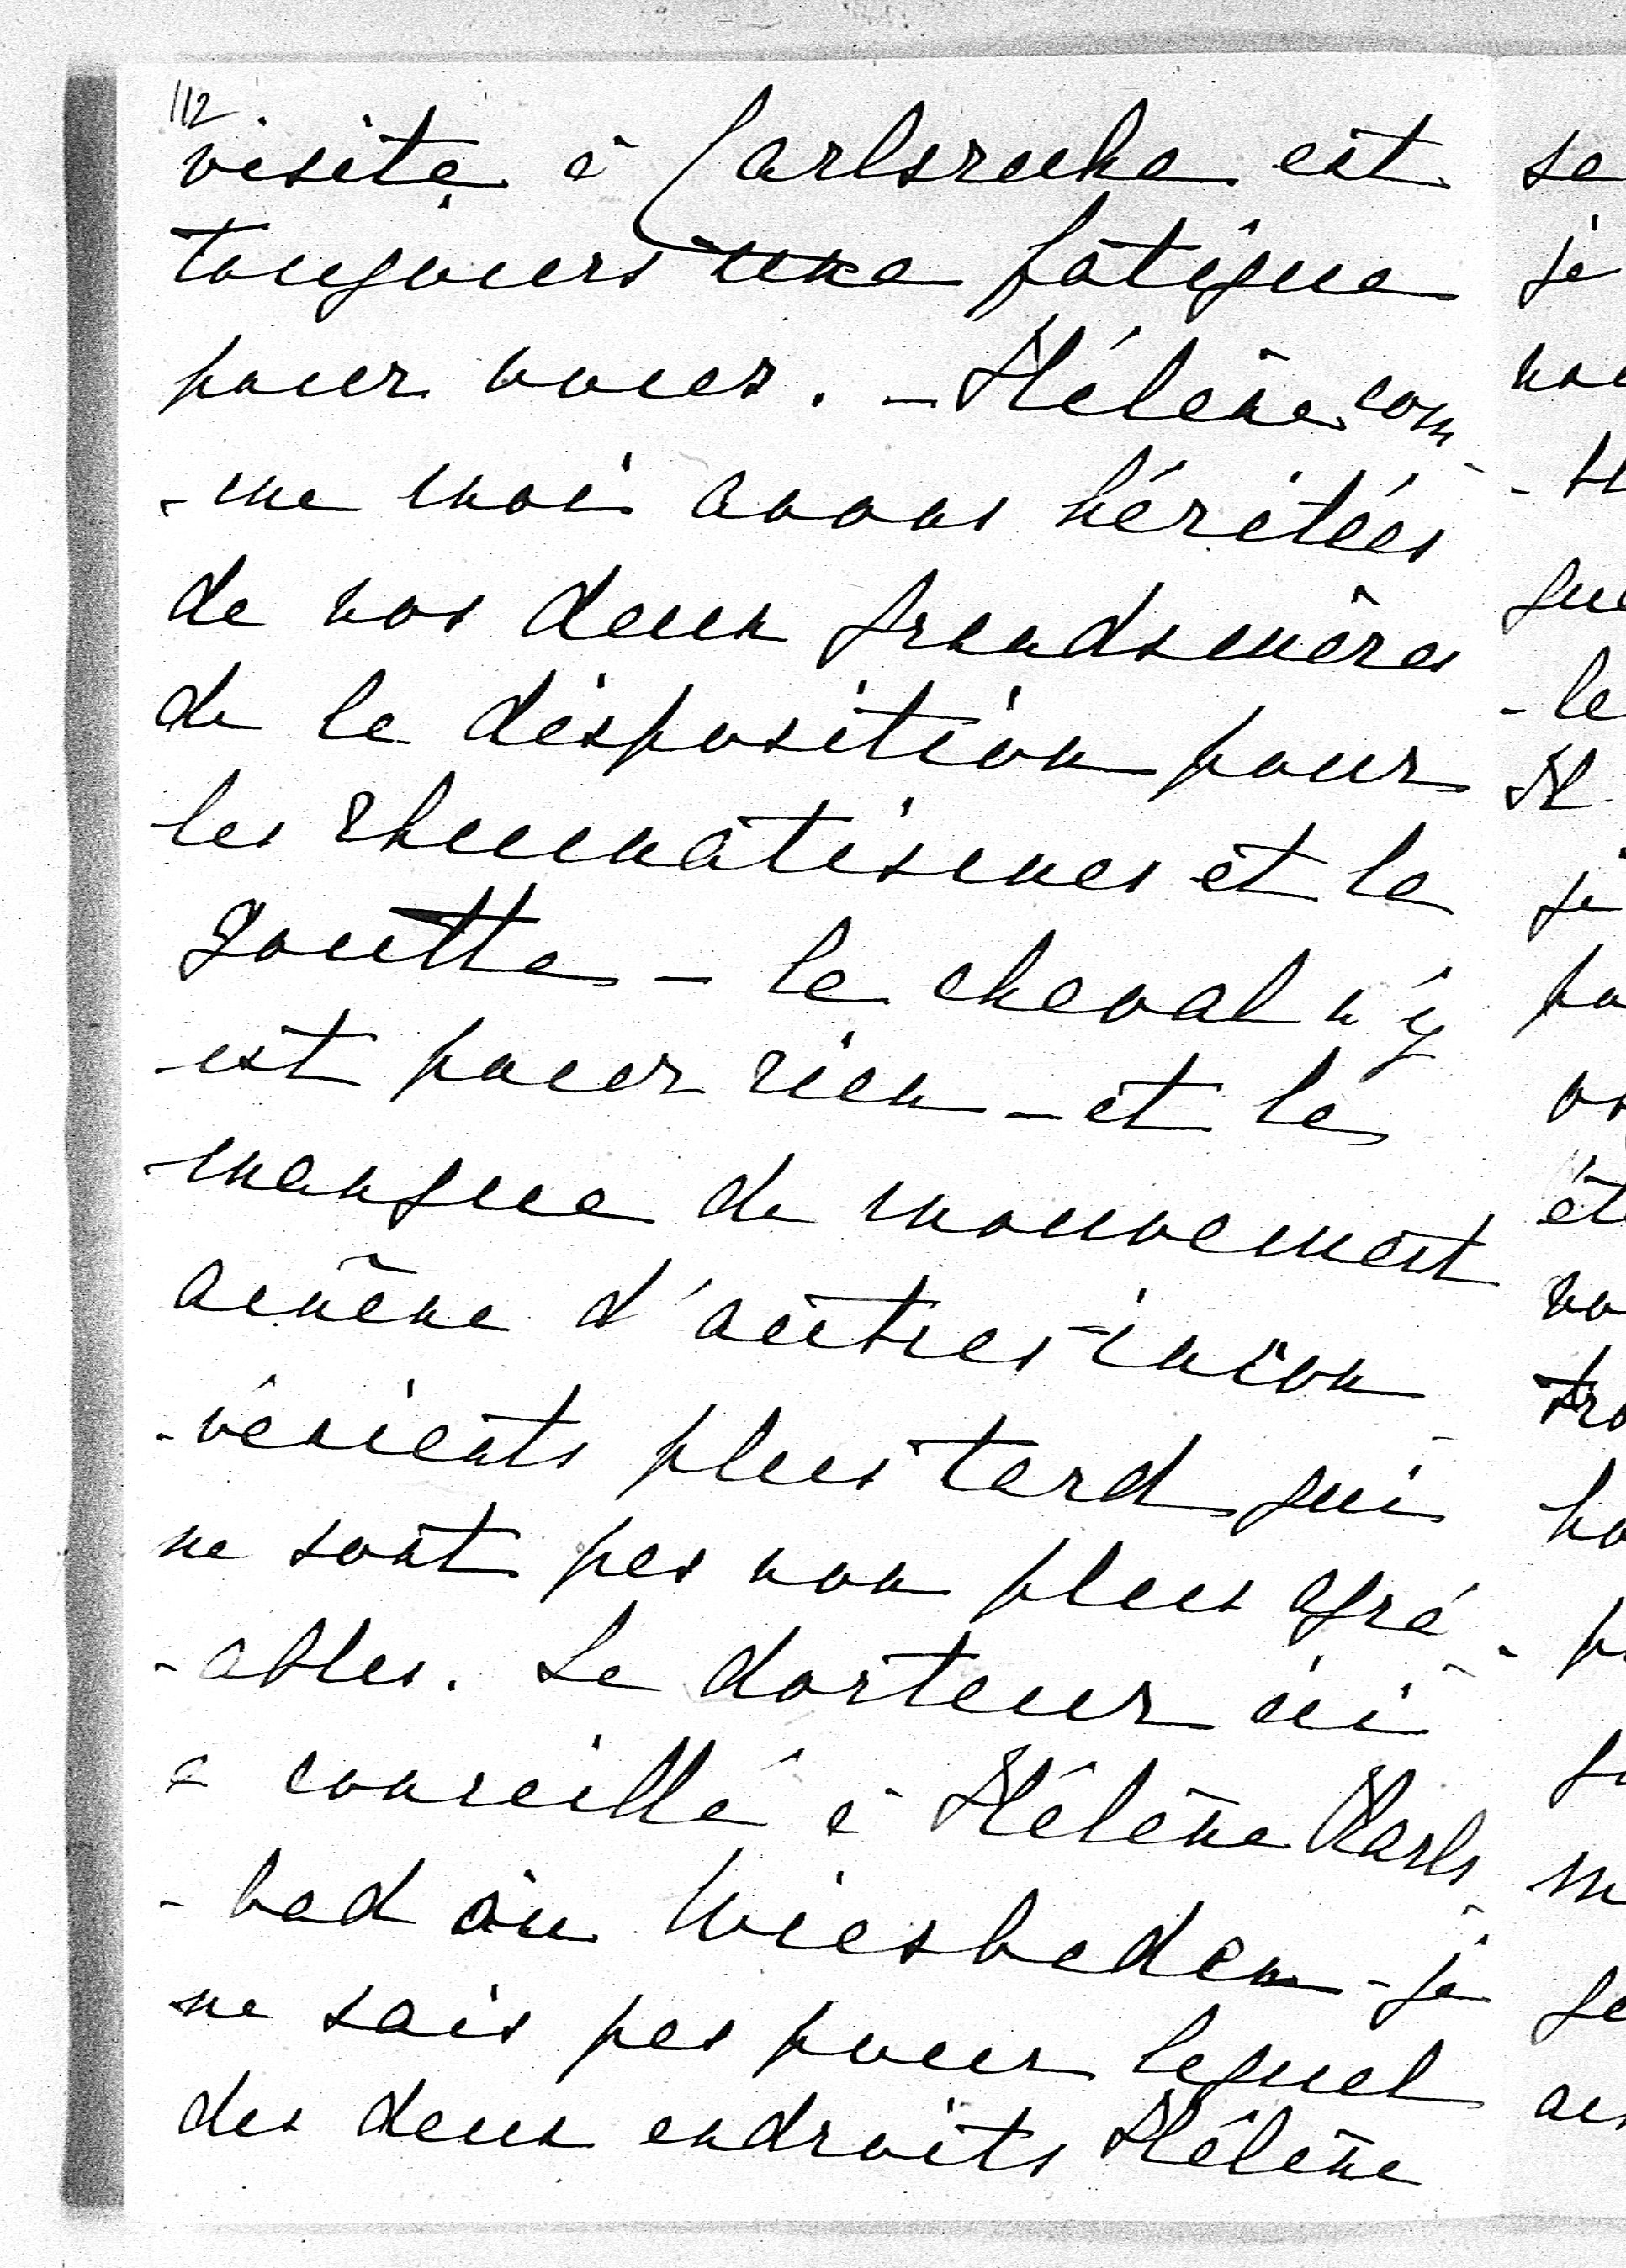 112
visite à Carlsruhe est
toujours une fatigue
pour vous. - Hélène com
-me moi avons héritées
de nos deux grandsmères
de la disposition pour
les rhumatismes et la
goutte - le cheval n'y
est pour rien - et le
manque de mouvement
amène d'autres incon
-vénients plus tard qui
ne sont pas non plus agré
-ables. Le docteur ici
a conseillé à Hélène Karls
-bad ou Wiesbaden - je
ne sais pas pour lequel
des deux endroits Hélène